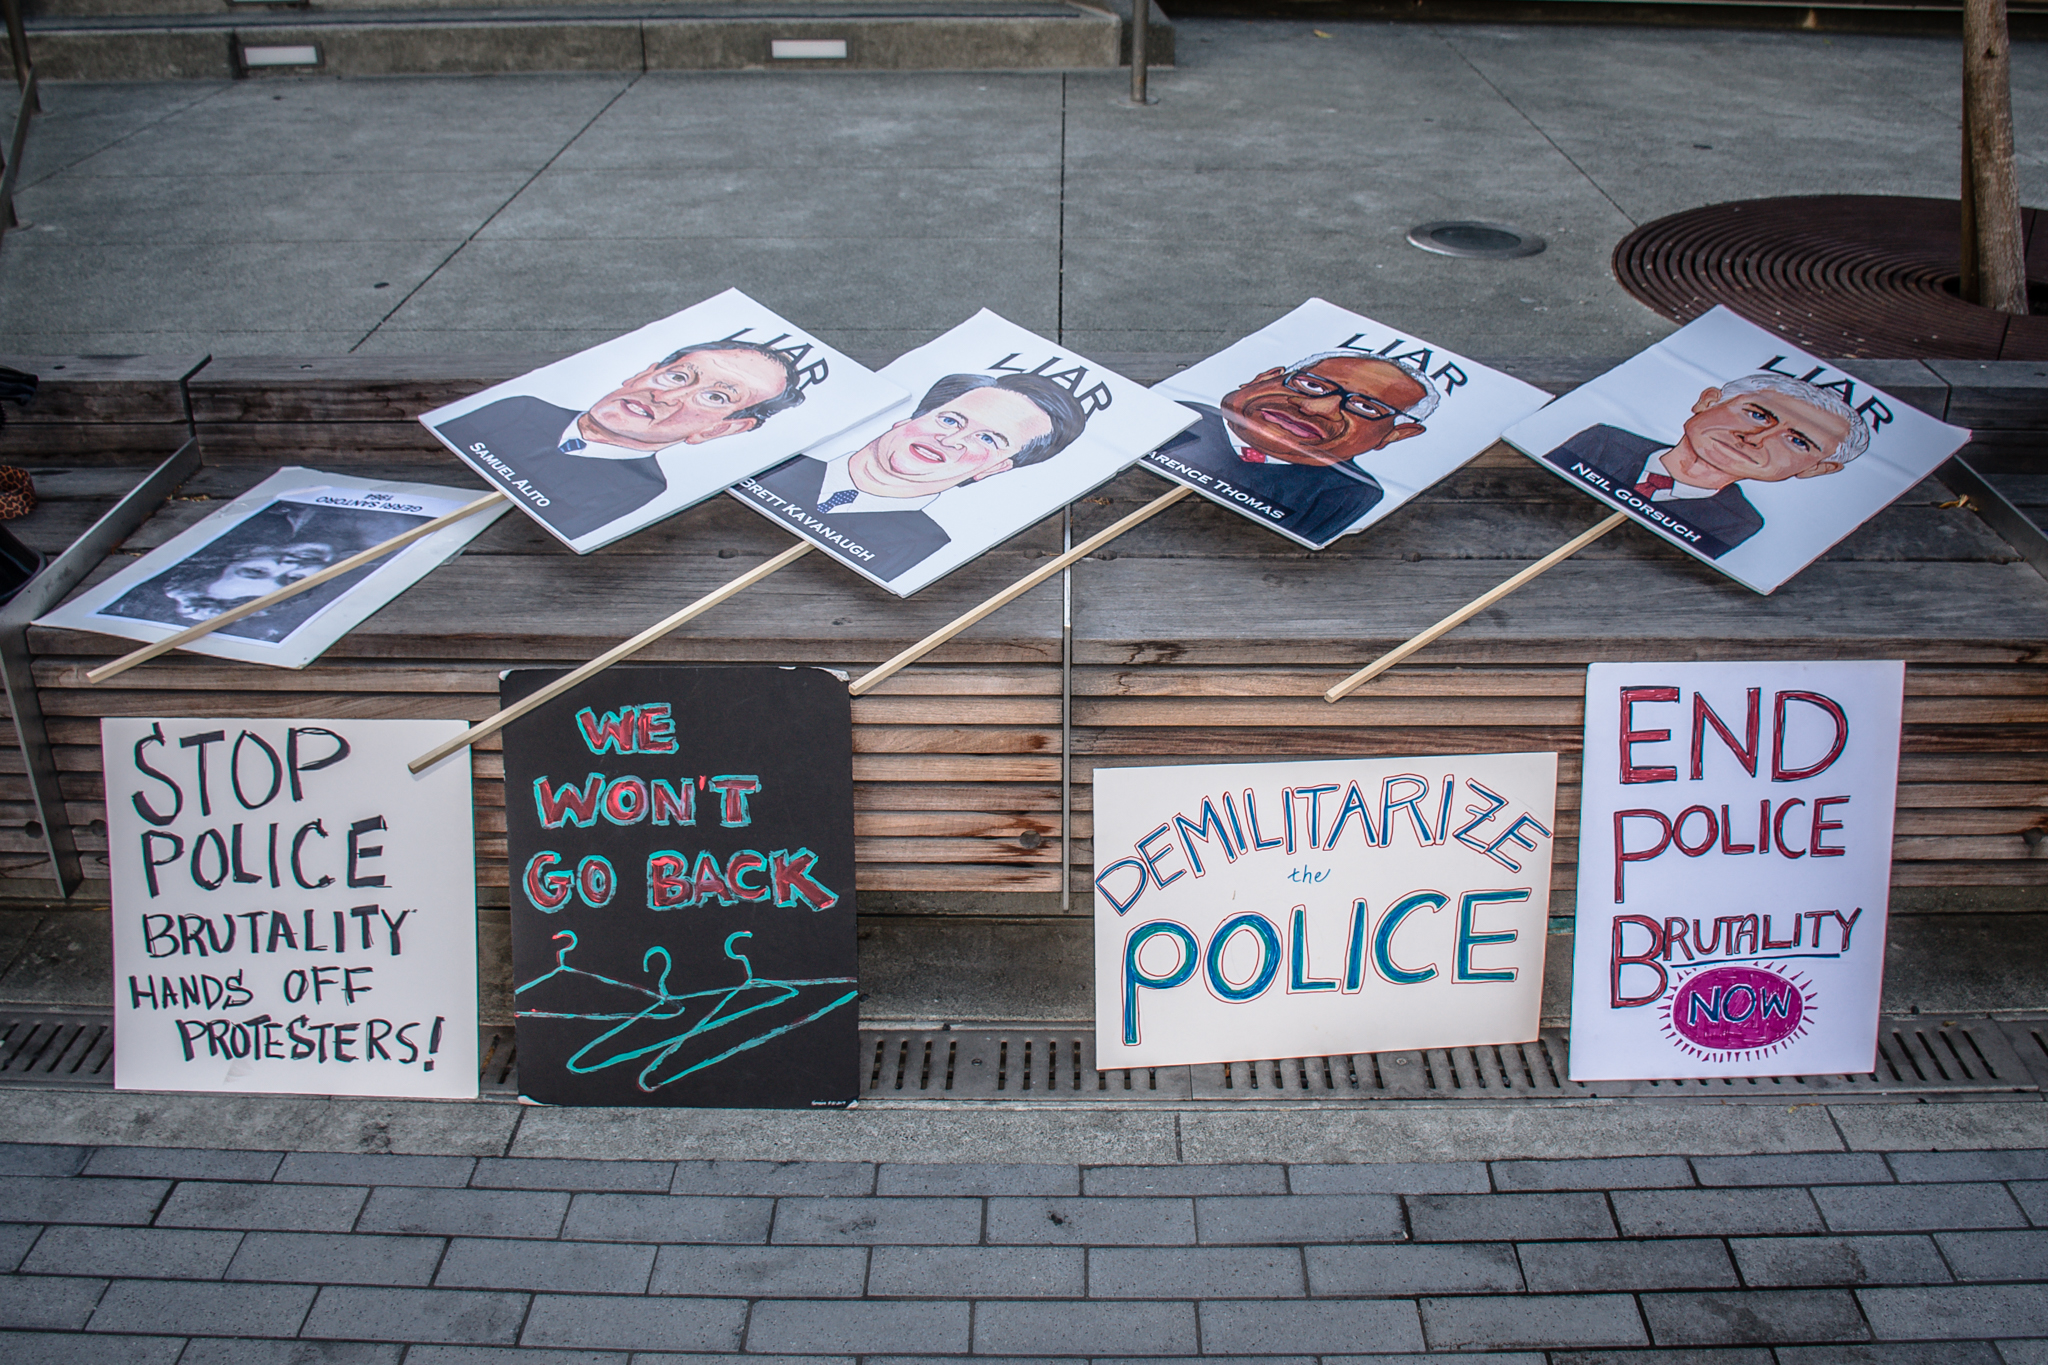 LIAR
SAMUEL ALITO
LIAR
BRETT KAVANAUGH
LIAR
ARENCE THOMAS
LIAR
NEIL GORSUCH
GERRI SANTORO
1964
STOP
POLICE
BRUTALITY
HANDS OFF
PROTESTERS!
WE
WON'T
GO BACK
DEMILITARIZE
the
POLICE
END
POLICE
BRUTALITY
NOW